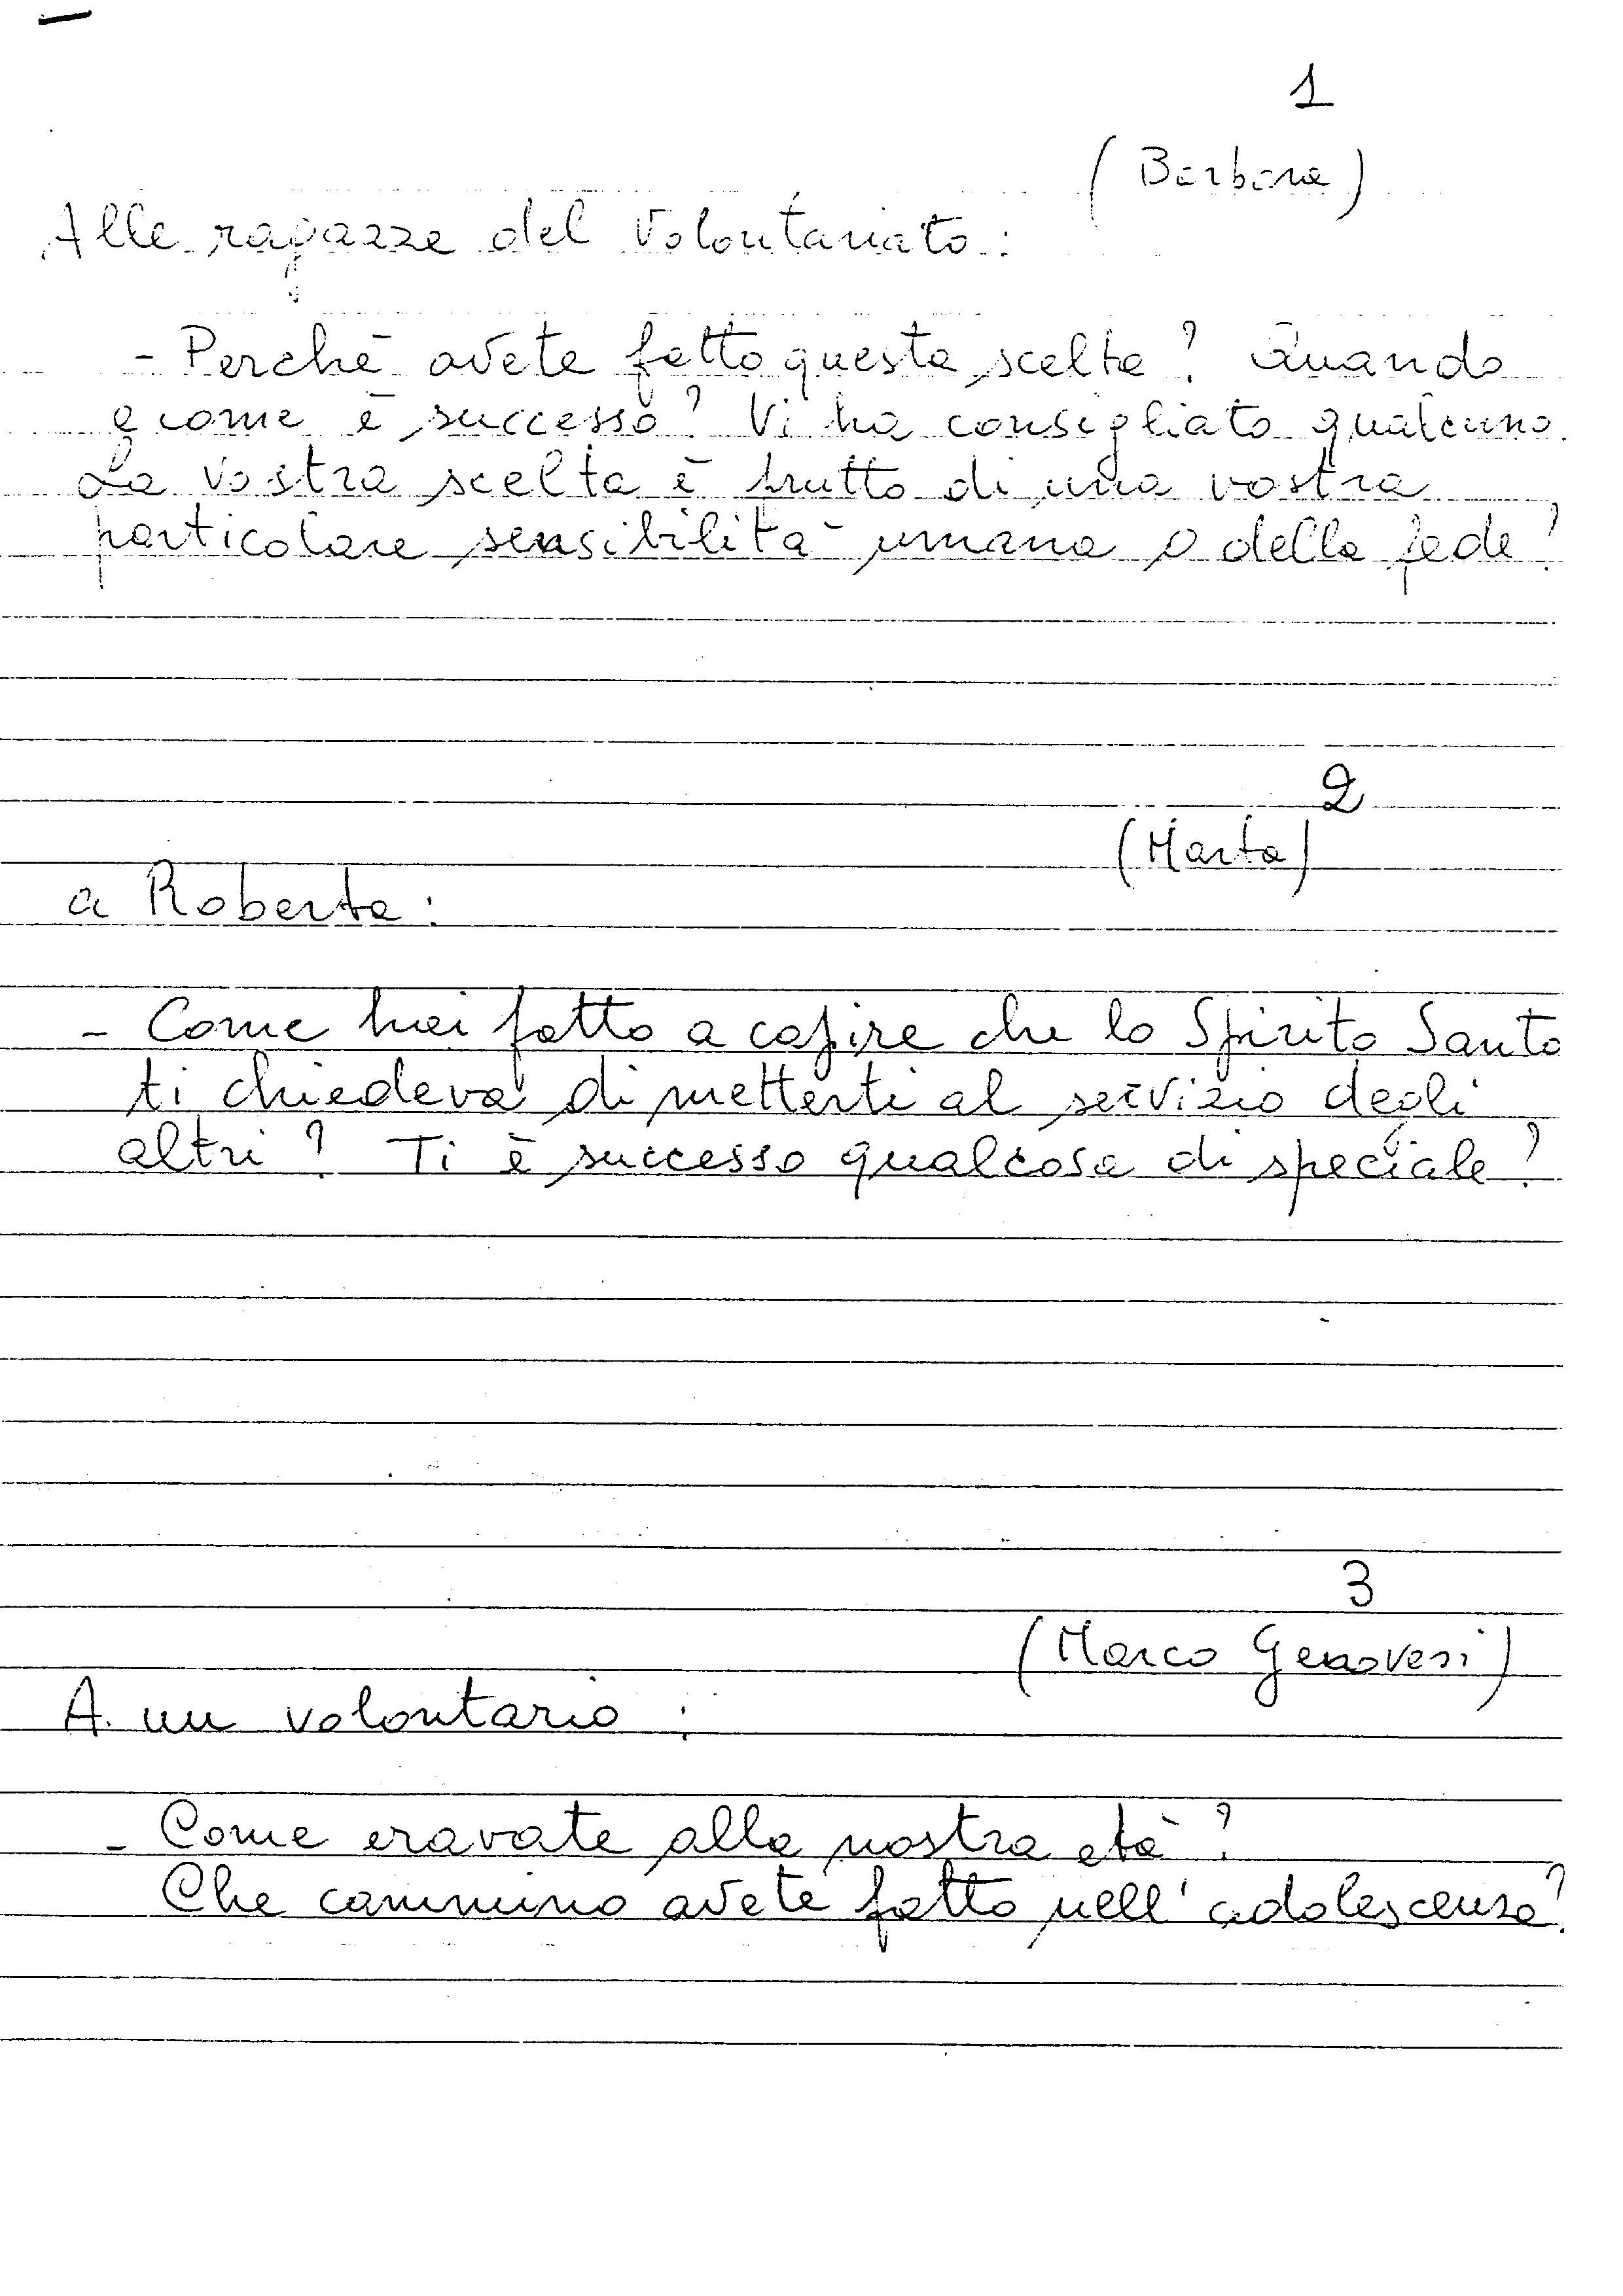 1
(Barbara)
Alle ragazze del Volontariato:
- Perchè avete fatto questa scelta? Quando
e come è successo? Vi ha consigliato qualcuno.
La vostra scelta è frutto di una vostra
particolare sensibilità umana o della fede?
2
(Marta)
a Roberta:
- Come hai fatto a capire che lo Spirito Santo
ti chiedeva di metterti al servizio degli
altri? Ti è successo qualcosa di speciale?
3
(Marco Genovesi)
A un volontario:
- Come eravate alla nostra età?
Che cammino avete fatto nell'adolescenza?